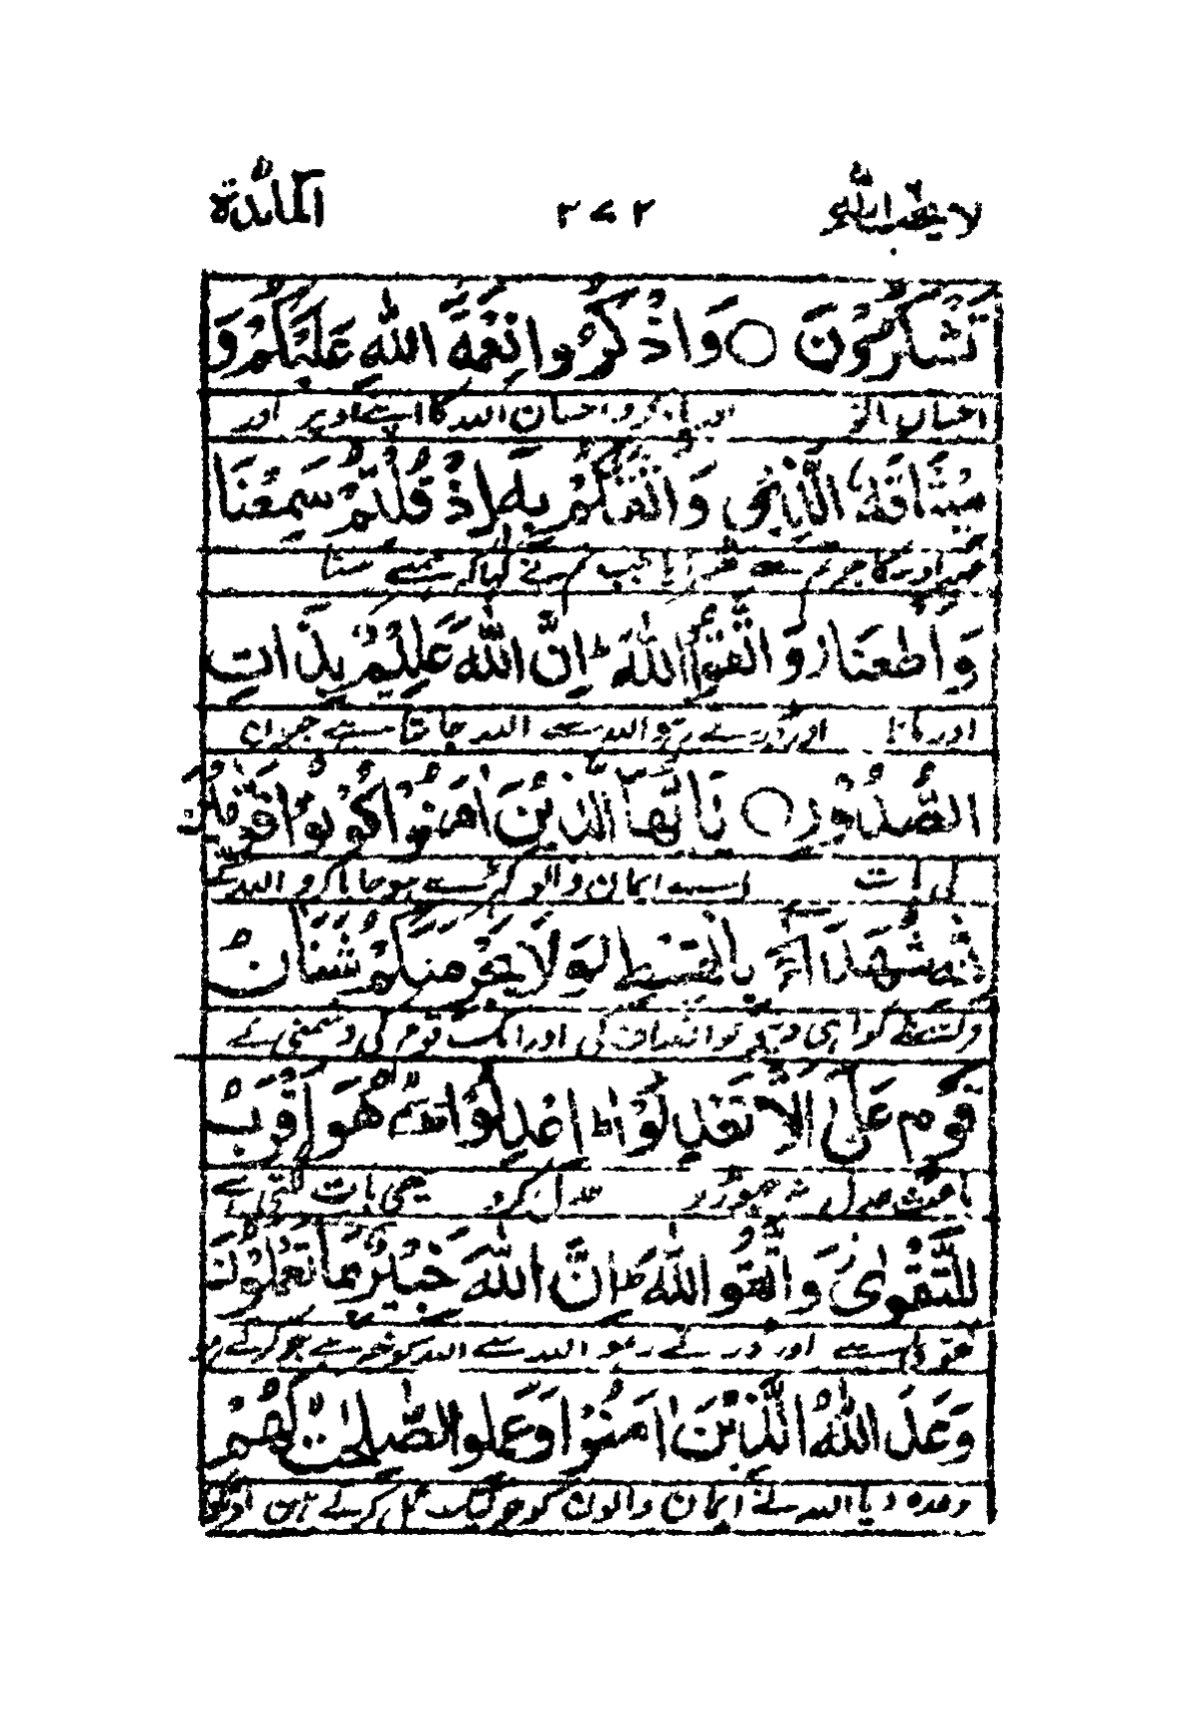 لا يحب الله ٢٧٢ المائدة
تَشْكُرُوْنَ ○ وَاذْكُرُوْا نِعْمَةَ اللّٰهِ عَلَيْكُمْ وَ
احسان اور احسان اللہ کا اپنے اوپر اور
مِيْثَاقَهُ الَّذِيْ وَاثَقَكُمْ بِهٖ اِذْ قُلْتُمْ سَمِعْنَا
جب تم نے کہا کہ ہمنے سنا
وَاَطَعْنَا وَاتَّقُوا اللّٰهَ ط اِنَّ اللّٰهَ عَلِيْمٌ بِذَاتِ
اور مانا اور ڈرتے رہو اللہ سے اللہ جانتا ہے
الصُّدُوْرِ ○ يَا اَيُّهَا الَّذِيْنَ اٰمَنُوْا كُوْنُوْا قَوَّامِيْنَ
کی بات اے ایمان والو کھڑے ہو جایا کرو اللہ کے
لِلّٰهِ شُهَدَآءَ بِالْقِسْطِ وَلَا يَجْرِمَنَّكُمْ شَنَاٰنُ
گواہی دینے کو انصاف کی اور ایک قوم کی دشمنی کے
قَوْمٍ عَلٰى اَلَّا تَعْدِلُوْا ط اِعْدِلُوْا هُوَ اَقْرَبُ
باعث عدل نہ چھوڑو عدل کرو یہی بات لگتی ہے
لِلتَّقْوٰى وَاتَّقُوا اللّٰهَ ط اِنَّ اللّٰهَ خَبِيْرٌ بِمَا تَعْمَلُوْنَ
تقویٰ سے اور ڈرتے رہو اللہ سے اللہ کو خبر ہے جو کرتے ہو
وَعَدَ اللّٰهُ الَّذِيْنَ اٰمَنُوْا وَعَمِلُوا الصّٰلِحٰتِ لَهُمْ
وعدہ دیا اللہ نے ایمان والوں کو جو نیک عمل کرتے ہیں